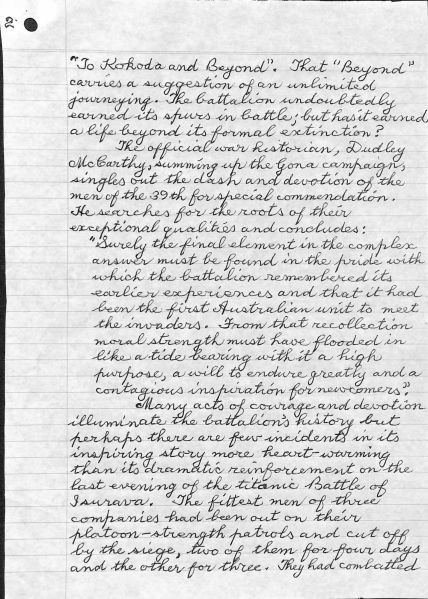 2.
"To Kokoda and Beyond". That "Beyond"
carries a suggestion of an unlimited
journeying. The battalion undoubtedly
earned its spurs in battle; but has it earned
a life beyond its formal extinction?
The official war historian, Dudley
McCarthy, summing up the Gona campaign,
singles out the dash and devotion of the
men of the 39th for special commendation.
He searches for the roots of their
exceptional qualities and concludes:
"Surely the final element in the complex
answer must be found in the pride with
which the battalion remembered its
earlier experiences and that it had
been the first Australian unit to meet
the invaders. From that recollection
moral strength must have flooded in
like a tide bearing with it a high
purpose, a will to endure greatly and a
contagious inspiration for newcomers."
Many acts of courage and devotion
illuminate the battalion's history but
perhaps there are few incidents in its
inspiring story more heart-warming
than its dramatic reinforcement on the
last evening of the titanic Battle of
Isurava. The fittest men of three
companies had been out on their
platoon-strength patrols and cut off
by the siege, two of them for four days
and the other for three. They had combatted